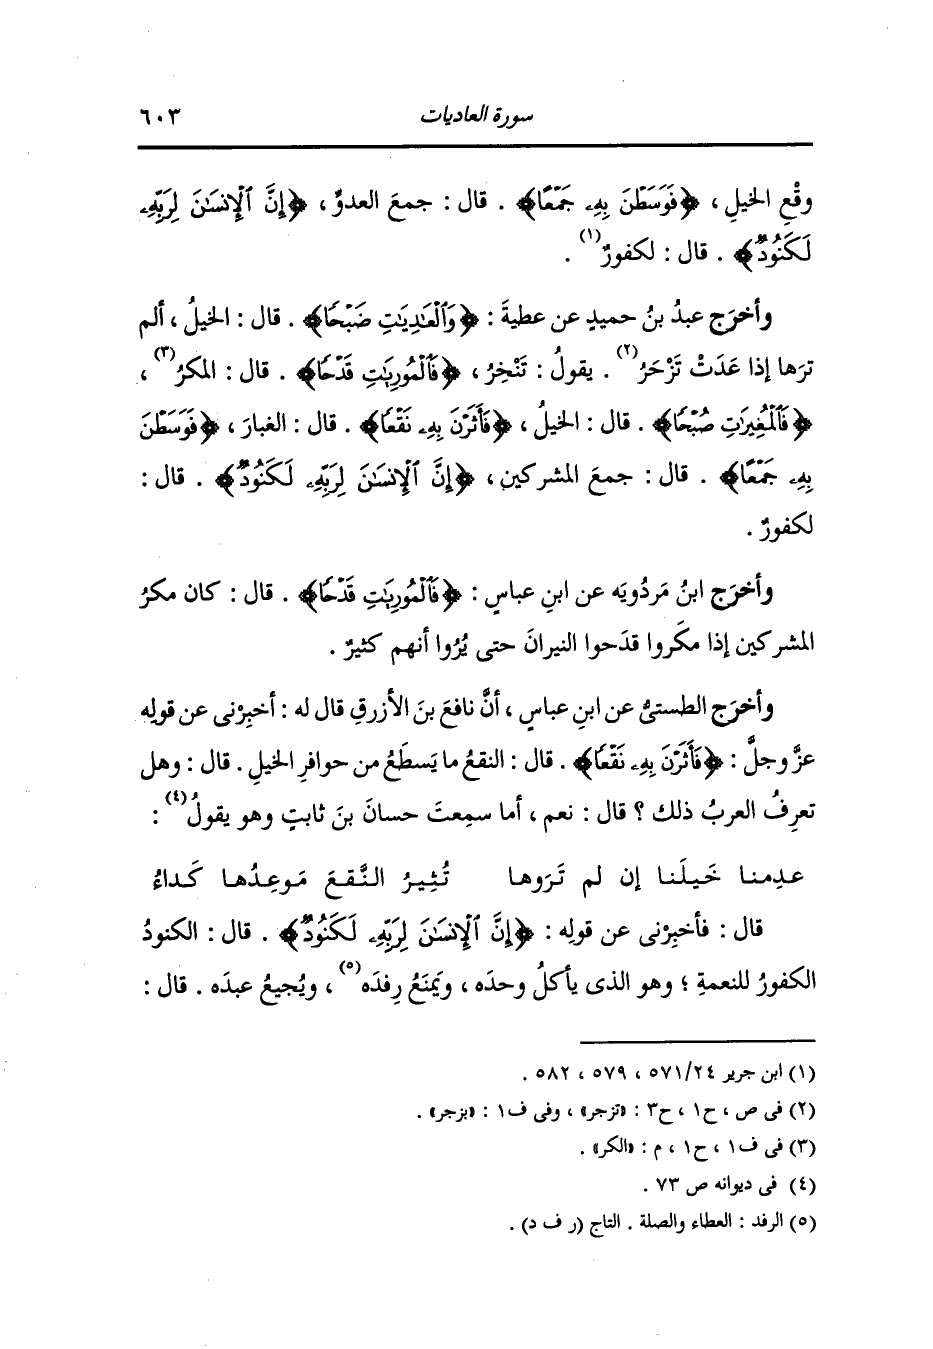 سورة العاديات ٦٠٣
وقْعِ الخيلِ ، ﴿فَوَسَطْنَ بِهِۦ جَمْعًا﴾ . قال : جمعَ العدوِّ ، ﴿إِنَّ ٱلْإِنسَٰنَ لِرَبِّهِۦ
لَكَنُودٌ﴾ . قال : لكفورٌ(١) .
وأخرَج عبدُ بنُ حميدٍ عن عطيةَ : ﴿وَٱلْعَٰدِيَٰتِ ضَبْحًا﴾ . قال : الخيلُ ، ألم
ترَها إذا عَدَتْ تَزْحَرُ(٢) . يقولُ : تَنْخِرُ ، ﴿فَٱلْمُورِيَٰتِ قَدْحًا﴾ . قال : المكرُ(٣) ،
﴿فَٱلْمُغِيرَٰتِ صُبْحًا﴾ . قال : الخيلُ ، ﴿فَأَثَرْنَ بِهِۦ نَقْعًا﴾ . قال : الغبارَ ، ﴿فَوَسَطْنَ
بِهِۦ جَمْعًا﴾ . قال : جمعَ المشركين ، ﴿إِنَّ ٱلْإِنسَٰنَ لِرَبِّهِۦ لَكَنُودٌ﴾ . قال :
لكفورٌ .
وأخرَج ابنُ مَردُويَه عن ابنِ عباسٍ : ﴿فَٱلْمُورِيَٰتِ قَدْحًا﴾ . قال : كان مكرُ
المشركين إذا مكَروا قدَحوا النيرانَ حتى يُرُوا أنهم كثيرٌ .
وأخرَج الطستىُّ عن ابنِ عباسٍ ، أنَّ نافعَ بنَ الأزرقِ قال له : أخبِرْنى عن قولِه
عزَّ وجلَّ : ﴿فَأَثَرْنَ بِهِۦ نَقْعًا﴾ . قال : النقعُ ما يَسطَعُ من حوافرِ الخيلِ . قال : وهل
تعرِفُ العربُ ذلك ؟ قال : نعم ، أما سمِعتَ حسانَ بنَ ثابتٍ وهو يقولُ(٤) :
عدِمنا خَيلَنا إن لم تَرَوها تُثِيرُ النَّقعَ مَوعِدُها كَداءُ
قال : فأخبِرْنى عن قولِه : ﴿إِنَّ ٱلْإِنسَٰنَ لِرَبِّهِۦ لَكَنُودٌ﴾ . قال : الكنودُ
الكفورُ للنعمةِ ؛ وهو الذى يأكلُ وحدَه ، ويَمنَعُ رِفدَه(٥) ، ويُجيعُ عبدَه . قال :
(١) ابن جرير ٥٧١/٢٤ ، ٥٧٩ ، ٥٨٢ .
(٢) فى ص ، ح١ ، ح٣ : «تزجر» ، وفى ف١ : «يزجر» .
(٣) فى ف١ ، ح١ ، م : «الكر» .
(٤) فى ديوانه ص ٧٣ .
(٥) الرفد : العطاء والصلة . التاج (ر ف د) .